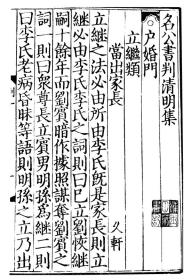 名公書判清明集
戶婚門
立繼類
當出家長
久軒
立繼之法必由所由李氏旣是家長則立
繼必由李氏李氏之詞則曰已立劉恢繼
嗣十餘年而劉賓暗作據照謀奪劉賓之
詞一則曰衆尊長立賓男明孫爲繼二則
曰李氏老病昏昧等語則明孫之立乃出